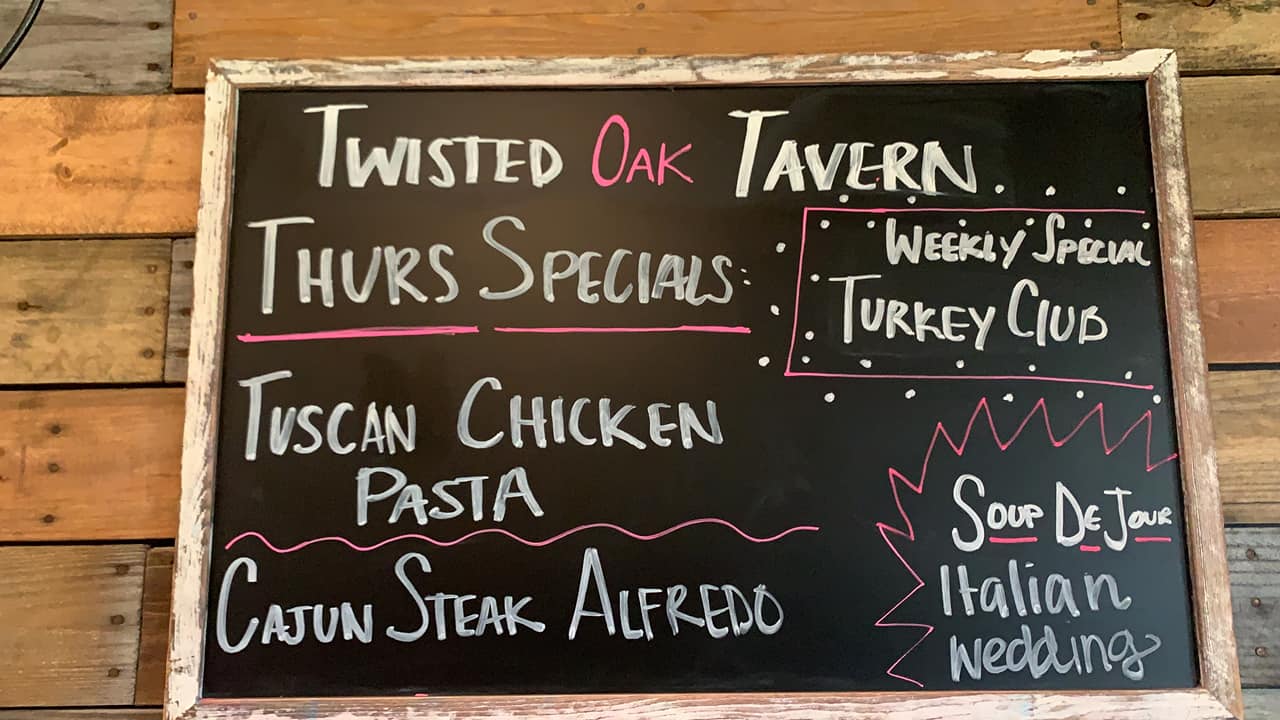 TWISTED OAK TAVERN
THURS SPECIALS:
TUSCAN CHICKEN
PASTA
CAJUN STEAK ALFREDO
WEEKLY SPECIAL
TURKEY CLUB
SOUP DE JOUR
Italian
wedding